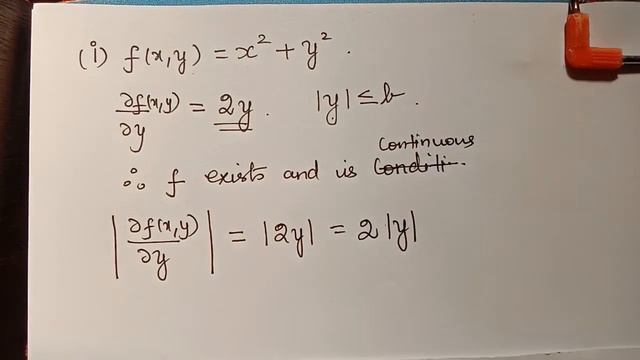 (i) f(x,y) = x² + y².
∂f(x,y)/∂y = 2y. |y| ≤ b.
∴ f exists and is continuous.
|∂f(x,y)/∂y| = |2y| = 2|y|